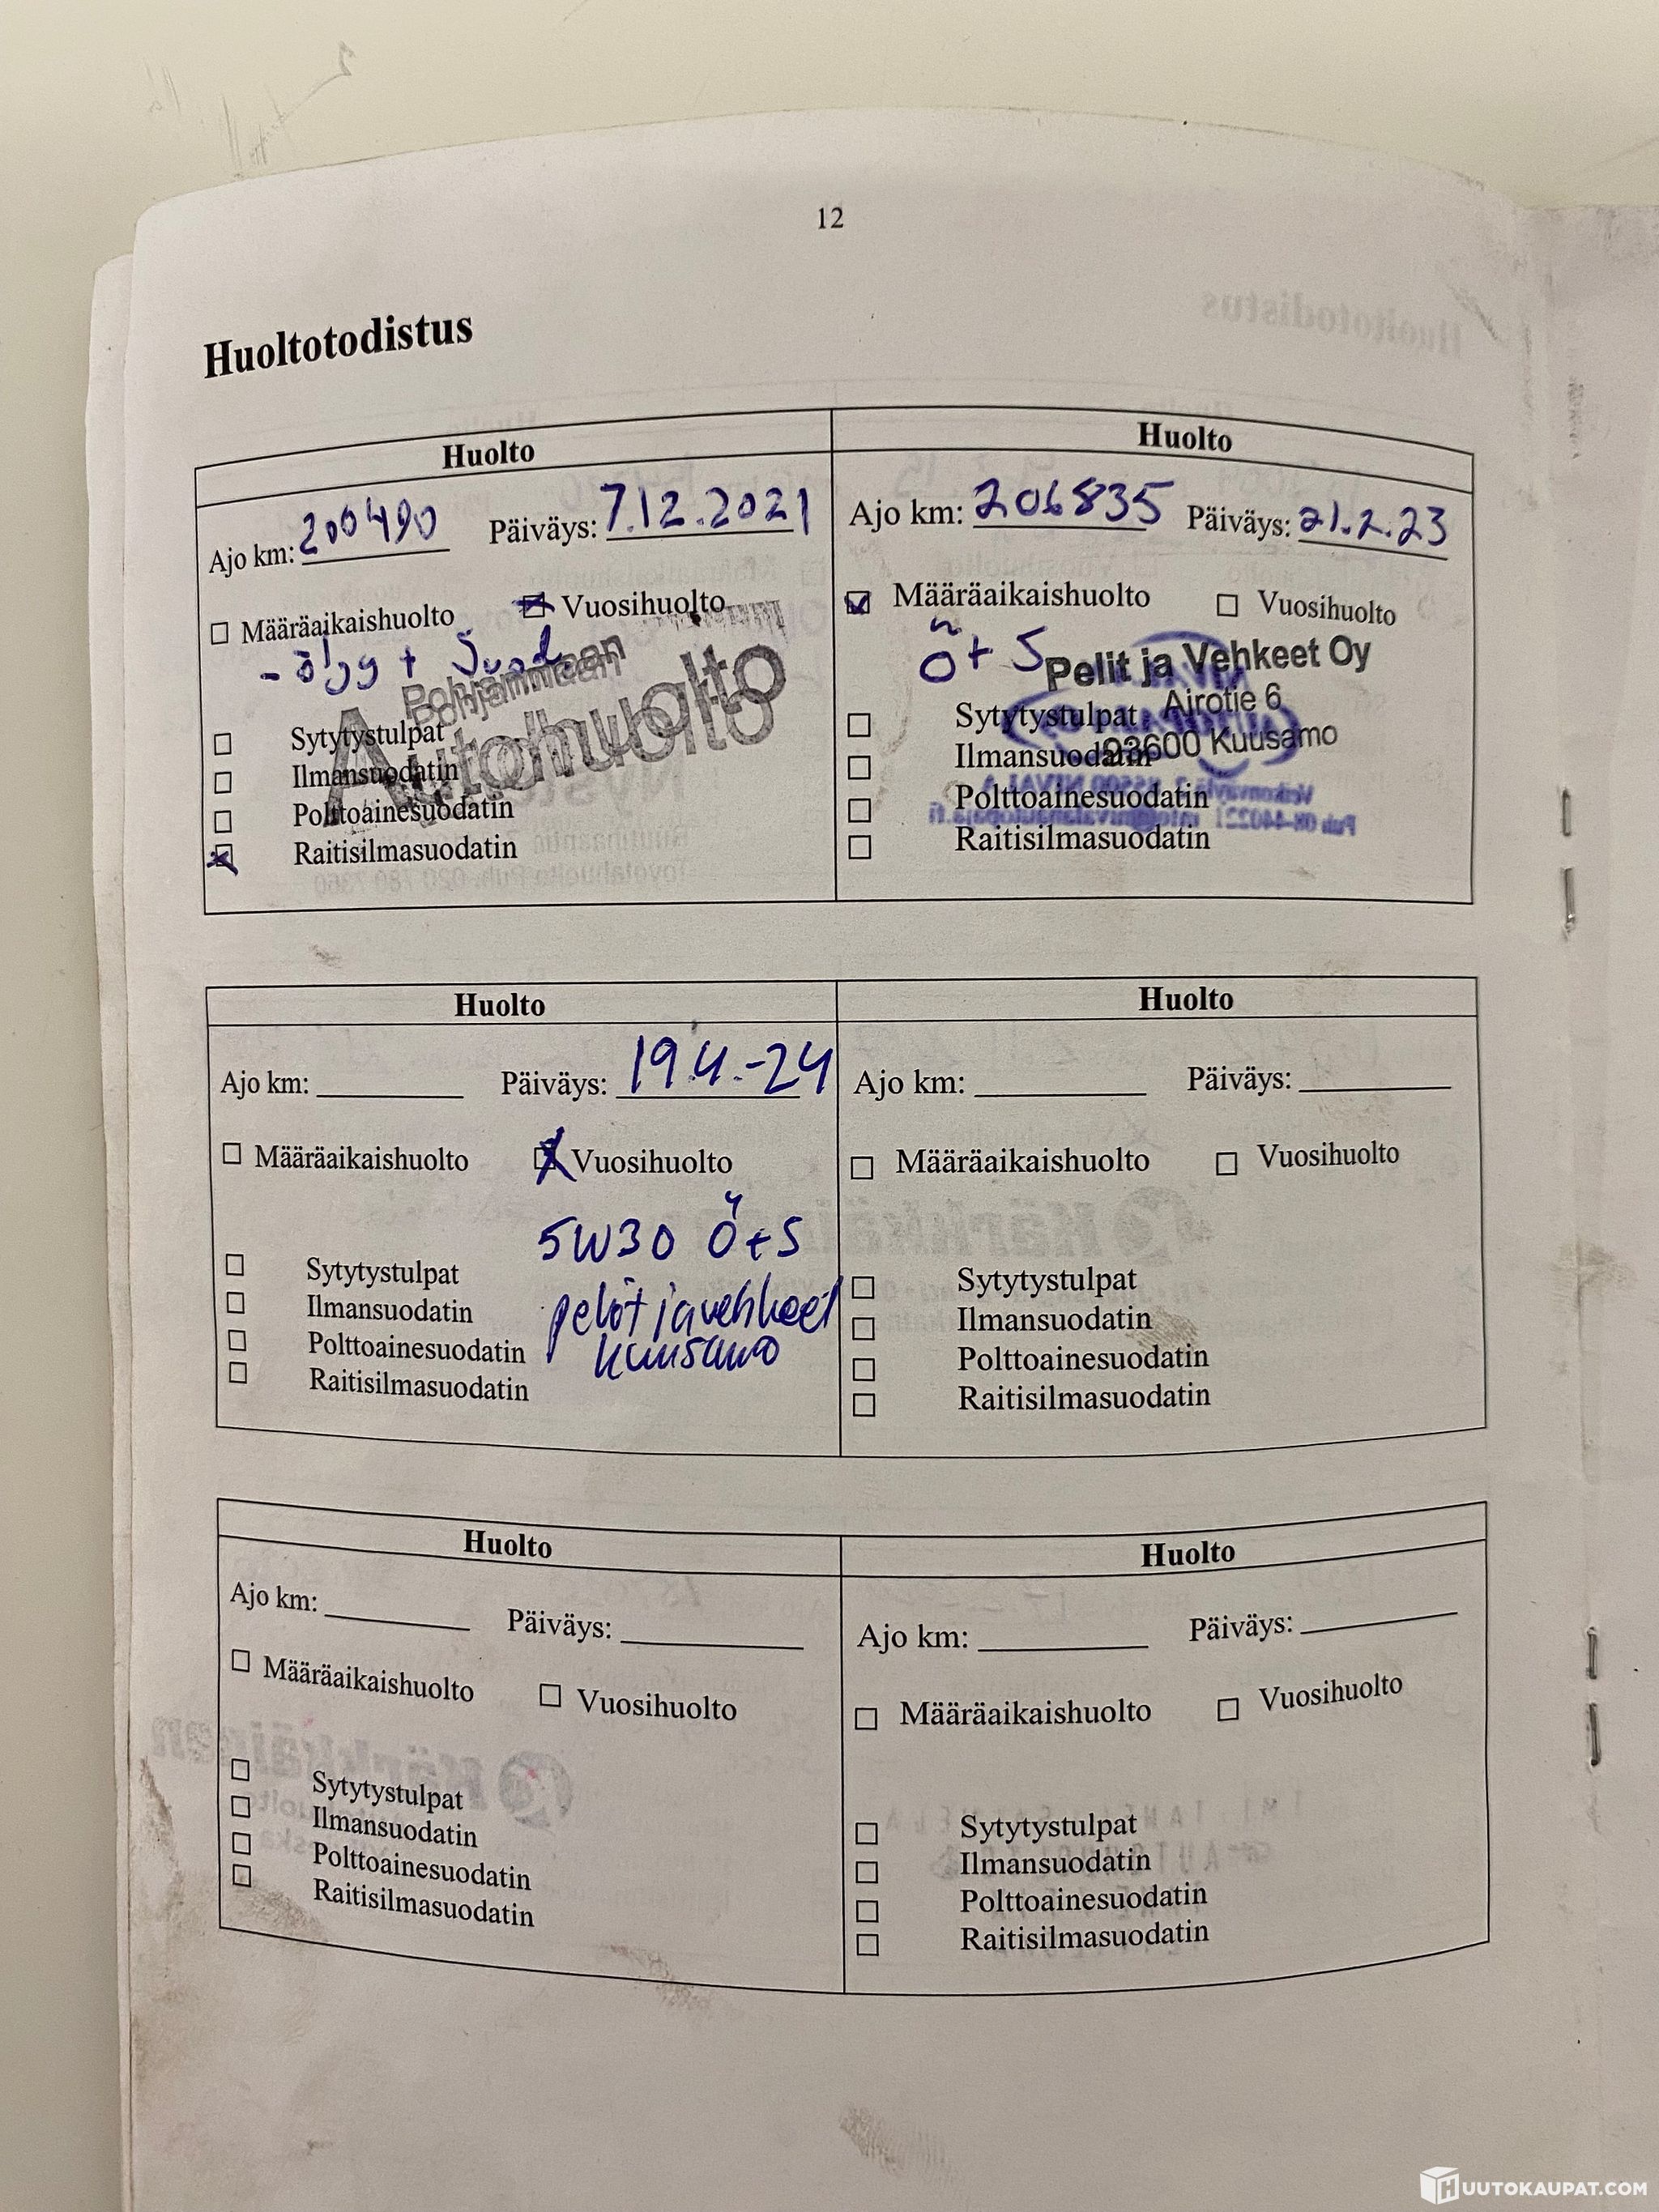 12
Huoltotodistus
Huolto
Ajo km: 200490 Päiväys: 7.12.2021
Määräaikaishuolto Vuosihuolto
- öljy + Suod.
Pohjanmaan
Autohuolto
Sytytystulpat
Ilmansuodatin
Polttoainesuodatin
Raitisilmasuodatin
Huolto
Ajo km: 206835 Päiväys: 21.2.23
Määräaikaishuolto Vuosihuolto
Ö + S
Pelit ja Vehkeet Oy
Airotie 6
93600 Kuusamo
Sytytystulpat
Ilmansuodatin
Polttoainesuodatin
Raitisilmasuodatin
Huolto
Ajo km: Päiväys: 19.4.-24
Määräaikaishuolto Vuosihuolto
5W30 Ö+S
pelit ja vehkeet
kuusamo
Sytytystulpat
Ilmansuodatin
Polttoainesuodatin
Raitisilmasuodatin
Huolto
Ajo km: Päiväys:
Määräaikaishuolto Vuosihuolto
Sytytystulpat
Ilmansuodatin
Polttoainesuodatin
Raitisilmasuodatin
Huolto
Ajo km: Päiväys:
Määräaikaishuolto Vuosihuolto
Sytytystulpat
Ilmansuodatin
Polttoainesuodatin
Raitisilmasuodatin
Huolto
Ajo km: Päiväys:
Määräaikaishuolto Vuosihuolto
Sytytystulpat
Ilmansuodatin
Polttoainesuodatin
Raitisilmasuodatin
HUUTOKAUPAT.COM